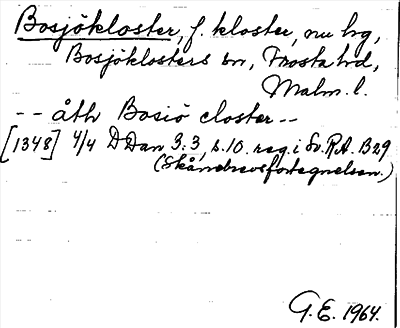 Bosjökloster, f. kloster, nu hg,
Bosjöklosters sn, Frosta hd,
Malm. l.
-- åth Bosiö closter --
[1348] 4/4 DDan 3:3, s.10. reg. i Sv.R.A. B29
(Skånebrevsfortegnelsen.)
G.E. 1964.